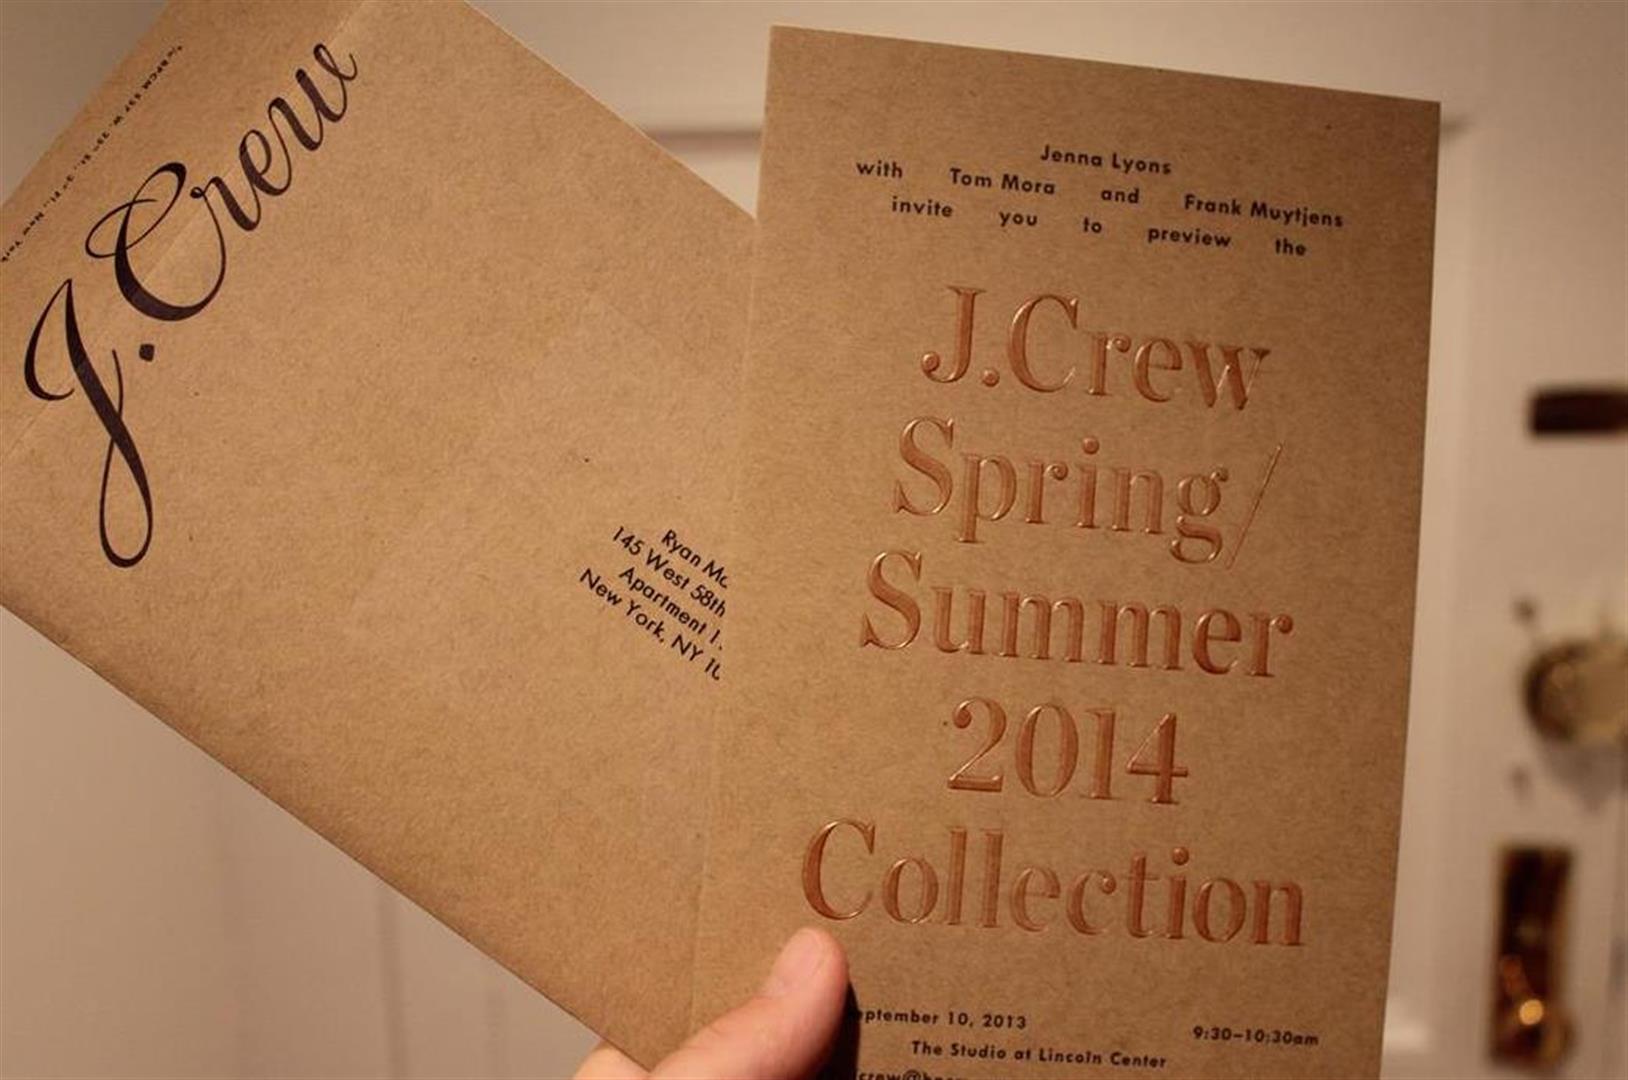 J.Crew
Ryan
145 West 58th
Apartment
New York, NY
Jenna Lyons
with Tom Mora and Frank Muytjens
invite you to preview the
J.Crew
Spring/
Summer
2014
Collection
eptember 10, 2013 9:30–10:30am
The Studio at Lincoln Center